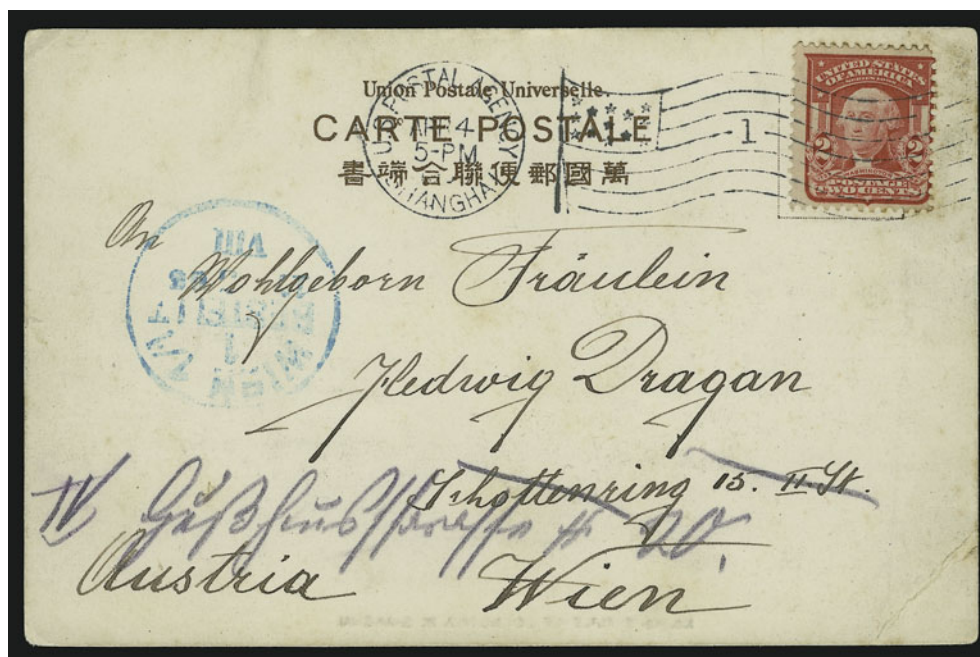 Union Postale Universelle.
CARTE POSTALE
書端合聯便郵國萬
U.S. POSTAL AGENCY
APR 4
5-PM
SHANGHAI
1
UNITED STATES
OF AMERICA
2 2
POSTAGE
TWO CENTS
An
Wohlgeborn Fräulein
Hedwig Dragan
Schottenring 15. II St.
IV Gußhausstrasse # 20.
Austria Wien
WIEN
BESTELLT
VIII